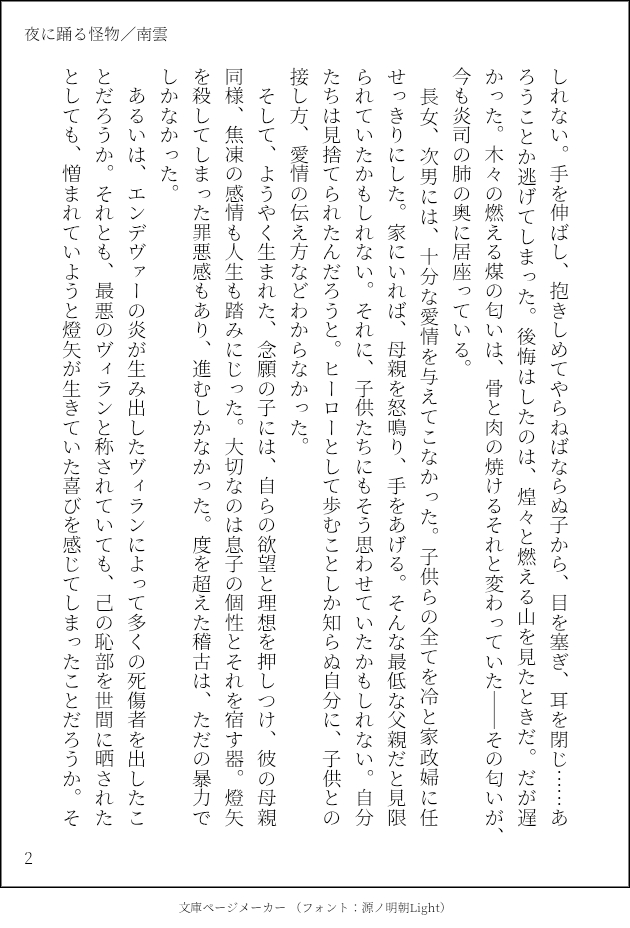 夜に踊る怪物／南雲
しれない。手を伸ばし、抱きしめてやらねばならぬ子から、目を塞ぎ、耳を閉じ……あ
ろうことか逃げてしまった。後悔はしたのは、煌々と燃える山を見たときだ。だが遅
かった。木々の燃える煤の匂いは、骨と肉の焼けるそれと変わっていた――その匂いが、
今も炎司の肺の奥に居座っている。
長女、次男には、十分な愛情を与えてこなかった。子供らの全てを冷と家政婦に任
せっきりにした。家にいれば、母親を怒鳴り、手をあげる。そんな最低な父親だと見限
られていたかもしれない。それに、子供たちにもそう思わせていたかもしれない。自分
たちは見捨てられたんだろうと。ヒーローとして歩むことしか知らぬ自分に、子供との
接し方、愛情の伝え方などわからなかった。
そして、ようやく生まれた、念願の子には、自らの欲望と理想を押しつけ、彼の母親
同様、焦凍の感情も人生も踏みにじった。大切なのは息子の個性とそれを宿す器。燈矢
を殺してしまった罪悪感もあり、進むしかなかった。度を超えた稽古は、ただの暴力で
しかなかった。
あるいは、エンデヴァーの炎が生み出したヴィランによって多くの死傷者を出したこ
とだろうか。それとも、最悪のヴィランと称されていても、己の恥部を世間に晒された
としても、憎まれていようと燈矢が生きていた喜びを感じてしまったことだろうか。そ
2
文庫ページメーカー （フォント：源ノ明朝Light）